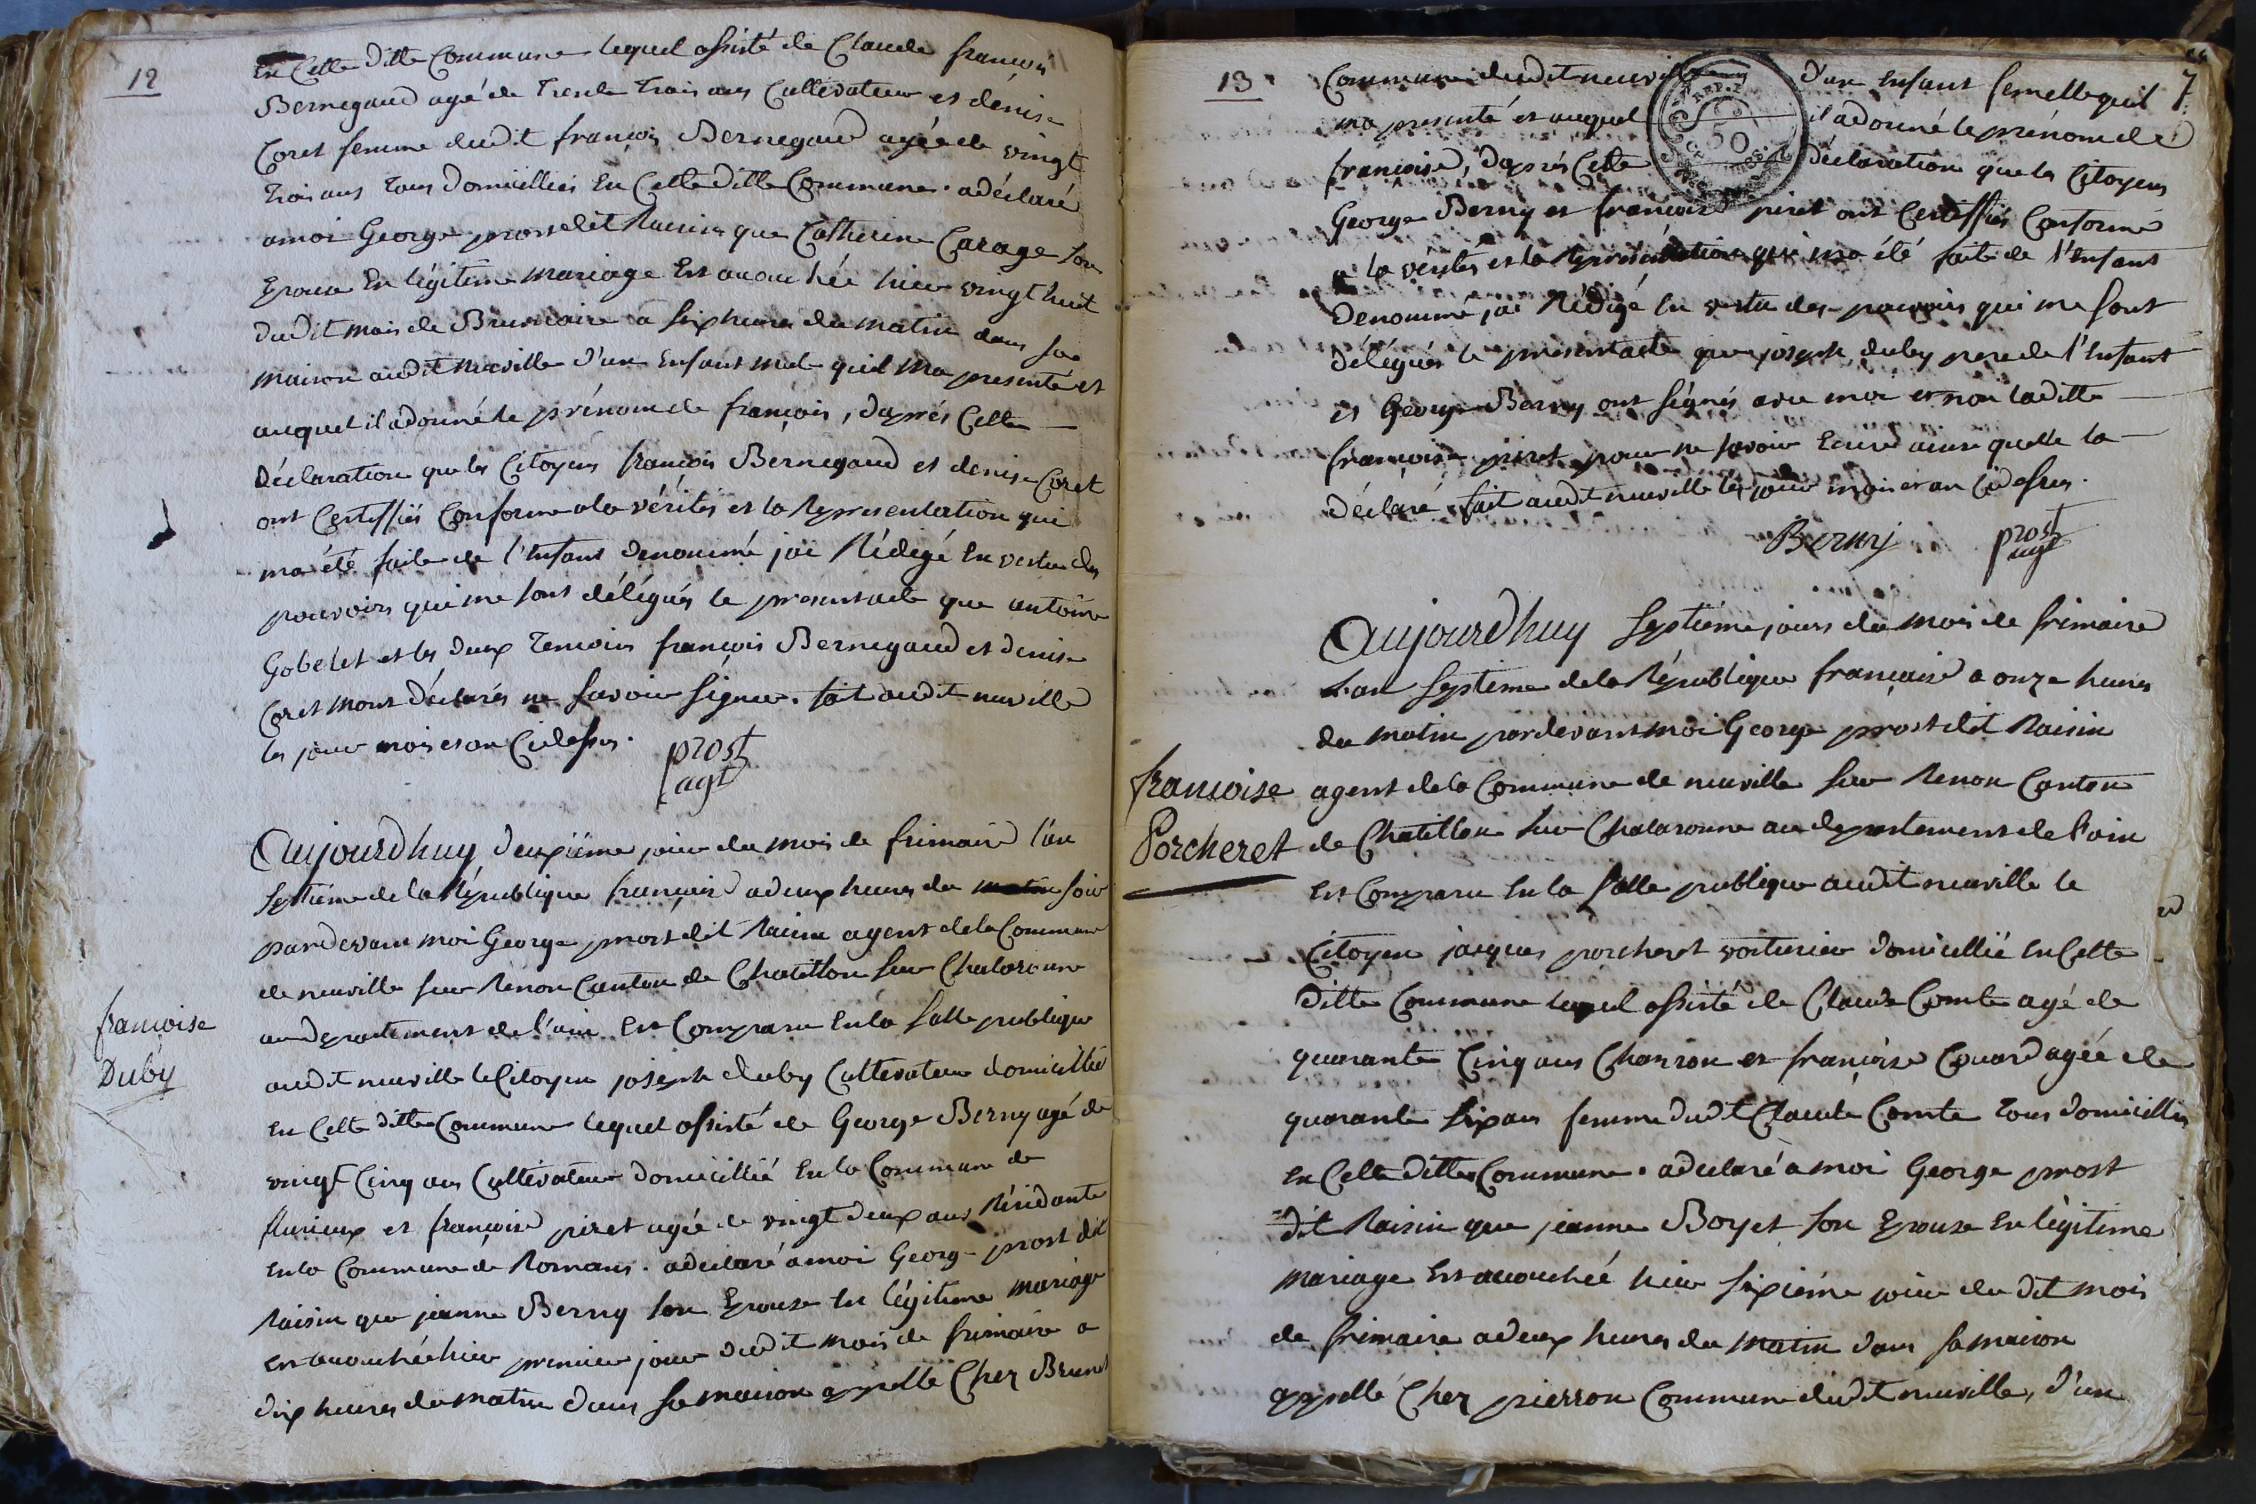 12
En Cette ditte Commune lequel assisté de Claude françois
Bernegaud agé de Trente Trois ans Cultivateur et denise
Coret femme dudit françois Bernegaud agée de vingt
Trois ans tous domicilliés En Cette ditte Commune. a déclaré
a moi George prost dit Raisin que Catherine Carage son
Epouse En légitime mariage Est accouchée hier vingt huit
dudit mois de Brumaire a six heures du matin dans sa
maison audit neuville d'un Enfant male quil ma presenté et
auquel il a donné le prénom de françois, daprés Cette
déclaration que les Citoyens françois Bernegaud et denise Coret
ont Certiffiés Conforme a la vérités et la Représentation qui
ma été faite de l'Enfant denommé jai Rédigé En vertu des
pouvoirs qui me sont délégués le present acte que antoine
Gobelet et les deux Temoins françois Bernegaud et denise
Coret mont déclarés ne savoir signer. fait audit neuville
les jour mois et an Cidessus.
prost
agt
Aujourdhuy deuxiéme jour du mois de frimaire l'an
septiéme de la République française a deux heures du matin soir
pardevant moi George prost dit Raisin agent de la Commune
de neuville sur Renon Canton de Chatillon sur Chalaronne
au departement de l'ain Est Comparu En la salle publique
audit neuville le Citoyen joseph duby Cultivateur domicillié
En Cette ditte Commune lequel assisté de George Berny agé de
vingt Cinq ans Cultivateur domicillié En la Commune de
flurieux et françoise piret agée de vingt deux ans Résidante
En la Commune de Romans. a déclaré a moi George prost dit
Raisin que jeanne Berny son Epouse En légitime mariage
Est accouchée hier premier jour dudit mois de frimaire a
dix heures du matin dans sa maison appellé Chez Brunet
francoise
Duby
13
7
Commune dudit neuville d'un Enfant femelle quil
ma presenté et auquel il a donné le prénom de
françoise, daprés Cette déclaration que les Citoyens
George Berny et françoise piret ont Certiffiés Conforme
a la vérités et la Représentation qui ma été faite de l'Enfant
denommé jai Rédigé En vertu des pouvoirs qui me sont
délégués le present acte que joseph duby pere de l'Enfant
et George Berny ont signés avec moi et non laditte
françoise piret pour ne savoir Ecrire ainsi quelle la
déclaré fait audit neuville les jour mois et an Cidessus.
Berny prost
agt
Aujourdhuy Septiéme jours du mois de frimaire
L'an Septieme de la République française a onze heures
du matin pardevant moi George prost dit Raisin
agent de la Commune de neuville sur Renon Canton
de Chatillon sur Chalaronne au departement de l'ain
Est Comparu En la salle publique audit neuville le
Citoyen jacques porcheret voiturier domicillié En Cette
ditte Commune lequel assisté de Claude Comte agé de
quarante Cinq ans Charron et françoise Couard agée de
quarante six ans femme dudit Claude Comte tous domicilliés
En Cette ditte Commune. a déclaré a moi George prost
dit Raisin que jeanne Boyet son Epouse En légitime
mariage Est accouchée hier sixiéme jour du dit mois
de frimaire a deux heures du matin dans sa maison
appellé Chez pierron Commune dudit neuville, d'un
francoise
Porcheret
REP. F.
50